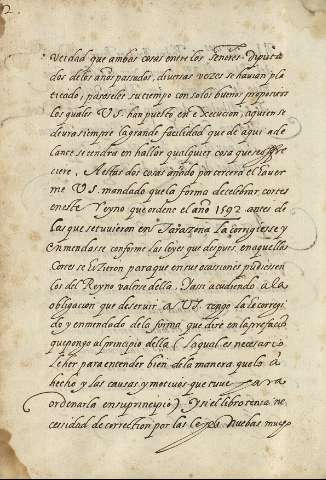 Verdad que ambas cosas entre los señores Diputa
dos de los años passados, diversas vezes se havian pla
ticado, pero a su tiempo con solos buenos propositos
los quales V.S. han puesto en execucion, a quien se
deviara siempre la grande facilidad que de aqui ade
lante se tendra en hallar qualquier cosa que se offre
ciere. A estas dos cosas añado por tercero el haver
me V.S. mandado que la forma de celebrar cortes
en este Reyno que ordene el año 1592 antes de
las que se tuvieron en Tarazona la corrigiesse y
enmendasse conforme las leyes que despues en aquellas
Cortes se hizieron para que en sus ocasiones pudiessen
los del Reyno valerse della. Y assi acudiendo a la
obligacion que de servir a V.S. tengo la he corregi
do y enmendado de la forma que dire en la prefacio
que pongo al principio della (la qual es necessario
leher para entender bien de la manera que lo a
hecho y las causas y motivos que tuve para
ordenarla en su principio) Y si el libro tenia ne
cesidad de correction por las leyes nuebas mucho